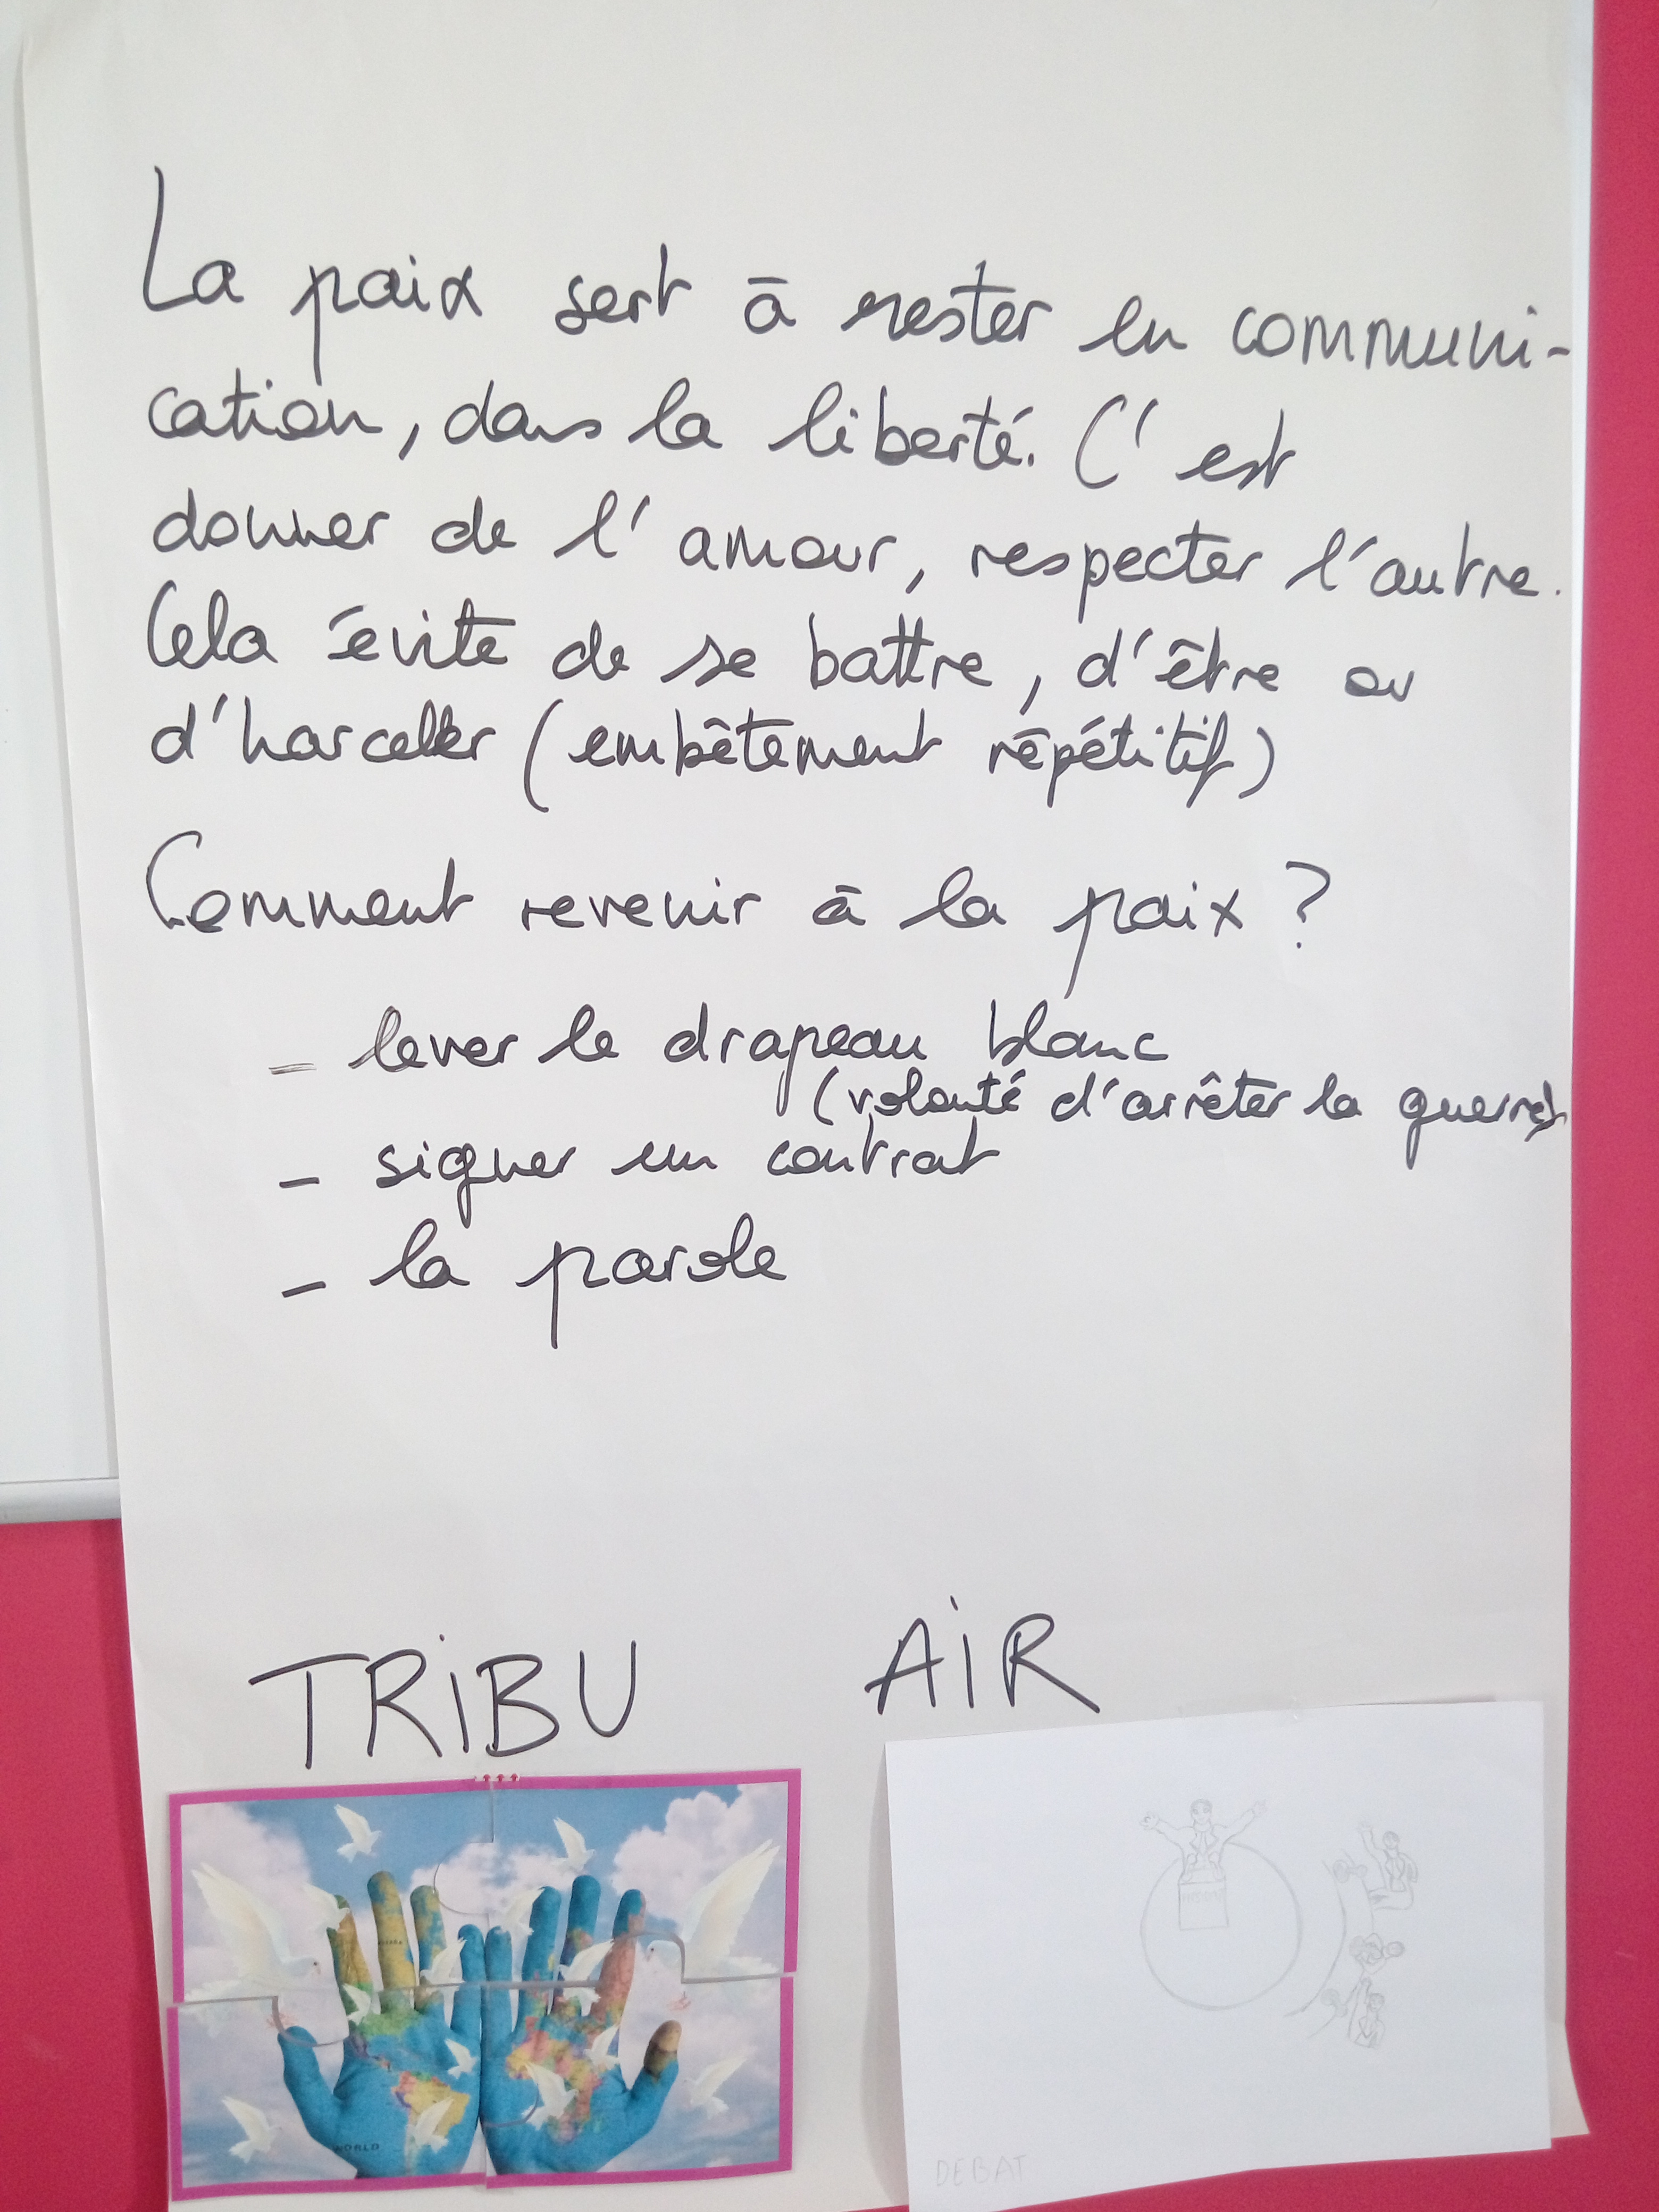 La paix sert à rester en communi-
cation, dans la liberté. C'est
donner de l'amour, respecter l'autre.
Cela évite de se battre, d'être ou
d'harceler (embêtement répétitif)
Comment revenir à la paix ?
- lever le drapeau blanc
(volonté d'arrêter la guerre)
- signer un contrat
- la parole
TRIBU AIR
WORLD
DEBAT